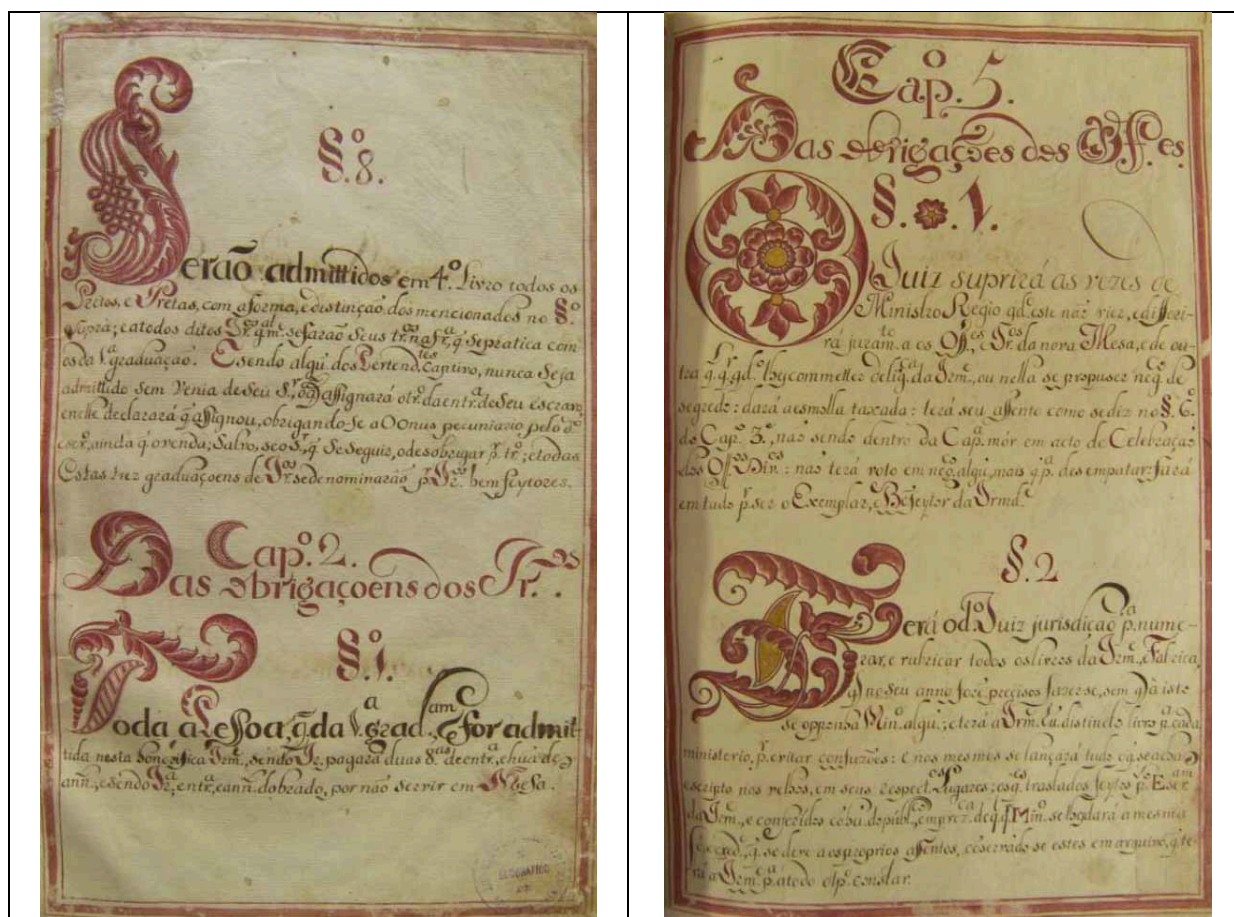 §º 8.
Serão admittidos em 4º. Livro todos os
Pretos, e Pretas, com a forma, e distinção dos mencionados no §º
supra; e a todos ditos Ir. se farão seus tr. na fr.ª, q̃ se pratica com
os da 1.ª graduação. E sendo algũ dos Pertend.tes captivo, nunca seja
admittido sem venia de seu Sr., assignará o tr. da entr.ª de seu escravo,
e nelle declarará q̃ assignou, obrigando-se a o Onus pecuniario pelo dº
escr.º, ainda q̃ o venda; Salvo, se o Sr., q̃ se seguir, o desobrigar p.r tr.º; e todas
Estas trez graduaçoens de Ir.os se denominarão p.r Ir.os bem feytores.
Capº. 2.
Das obrigaçoens dos Ir.os
§º. 1.
Toda a Pessoa, q̃ da 1.ª grad.am for admit
tida nesta honorifica Irm.e, sendo Ir., pagará duas 8.as de entr.ª, e hũa de
ann.l, e sendo Ir.ª, entr.ª, e ann.l dobrado, por não servir em Meza.
Capº. 5.
Das obrigações dos Off.es
§. 1.
O Juiz suprirá as vezes de
Ministro Regio qd.º este não vier, e differi-
rá juram.to a os Off.es, e Ir.os da nova Mesa, e de ou-
tra q.q. qd.º lhe commetter delig.ª da Irm.e, ou nella se propuser neg.º de
segredo: dará a esmolla taxada: terá seu assento como se diz no §. 6º
do Capº. 3º, não sendo dentro da Cap.ª mór em acto de Celebração
dos Off.os Div.os: não terá voto em neg.º algũ, mais q̃ p.ª desempatar: fará
em tudo p.r ser o Exemplar, e Bẽfeytor da Irmd.e
§. 2
Terá o d.º Juiz jurisdição p.ª nume-
rar, e rubricar todos os livros da Irm.e, e Fabrica,
q̃ no seu anno for preciso fazer-se, sem q̃ a isto
se opponha Min.º algũ; e terá a Irm.e hũ distincto livro p.ª cada
ministerio, p.ª evitar confuzões: e nos mesmos se lançará tudo o q̃ se achar
escripto nos velhos, em seus respect.os lugares; e
da Irm.e, e conferidos
se lhe dará a mesma
fé, e cred.º, q̃ se dere a os proprios assentos, cõservãdo se estes em arquivo, q̃ te-
rá a Irm.e p.ª a todo o tp.º constar.